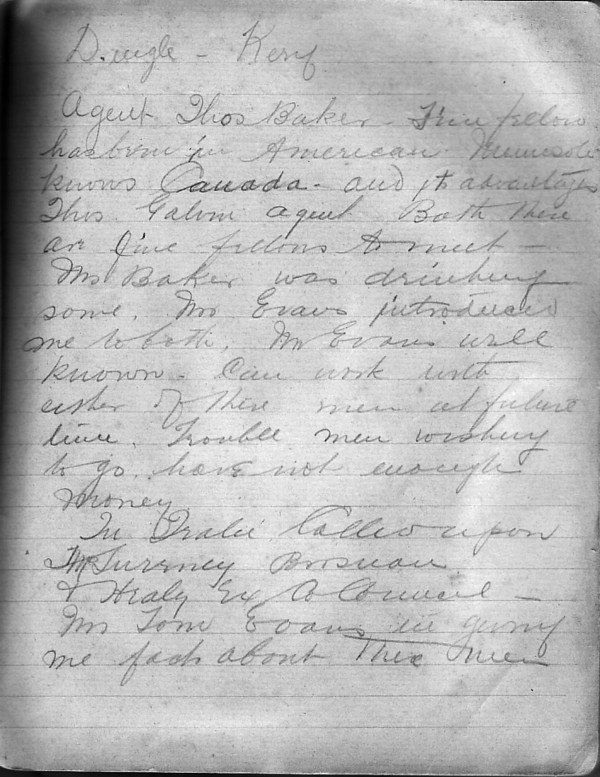 Dingle - Kerry
Agent Thos Baker - Fine fellow
has been in American Minnesota
knows Canada - and its advantages
Thos. Galvin agent. Both these
are fine fellows to meet -
Mr Baker was drinking
some. Mr Evans introduced
me to both. Mr Evans well
known - Can work with
either of these men at future
time. Trouble men wishing
to go have not enough
money
In Tralee Called upon
McSurrney Brosnan
& Healy Ex Co Council -
Mr Tom Evans in giving
me facts about these men